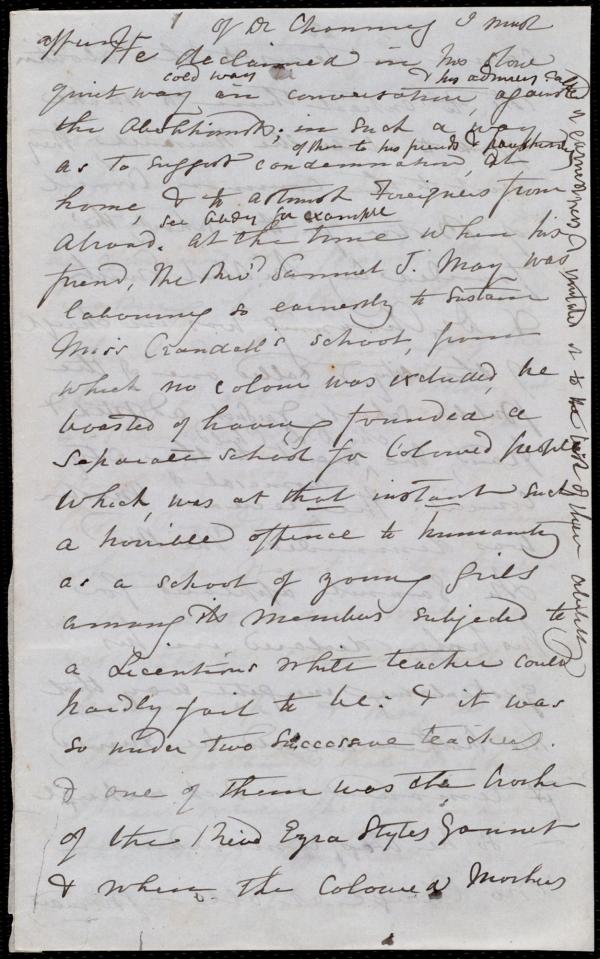 of Dr Channing I must
affirm He declaimed in his slow
cold way & his admirers called
quiet way in conversation, against
the Abolitionists; in such a way
often to his friends & parishioners
as to suggest condemnation, at
home, & to astonish Foreigners from
see Abdy for example
Abroad. At the time when his
friend, the Revd Samuel J. May was
labouring so earnestly to sustain
Miss Crandall's school, from
which no colour was excluded, he
boasted of having founded a
separate school for Colored people
which, was at that instant such
a horrible offence to humanity
as a school of young girls
among its members subjected to
a Licentious white teacher could
hardly fail to be: & it was
so under two successive teachers.
& one of them was the brother
of the Revd Ezra Styles Gannet
& when the Coloured Mothers
earnestness of mother is to the best of their abilities